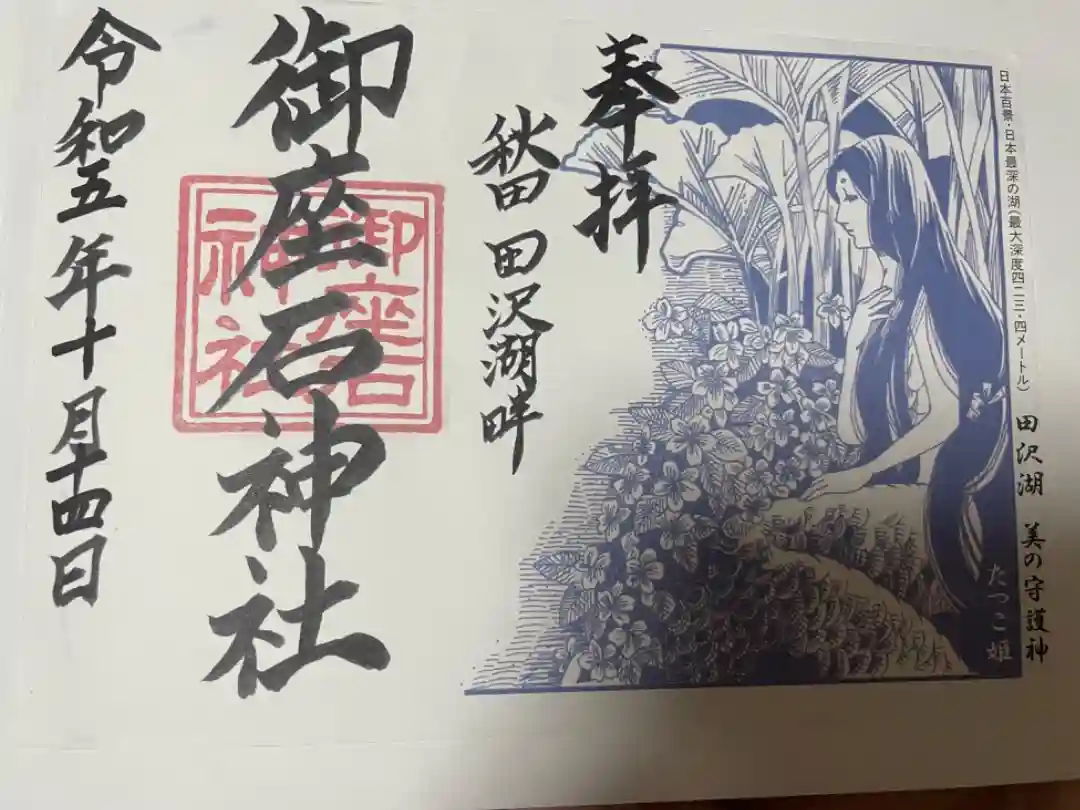 日本百景・日本最深の湖(最大深度四二三・四メートル)
田沢湖 美の守護神
たつこ姫
奉拝
秋田 田沢湖畔
御座石神社
御座石
神社
令和五年十月十四日